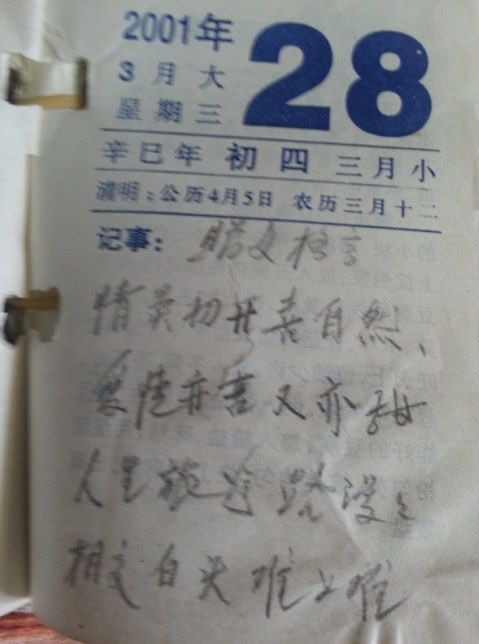 2001年 28
3月大
星期三
辛巳年 初四 三月小
清明:公历4月5日 农历三月十二
记事: 格言
情窦初开喜自然、
亦苦又亦甜
人生旅途路漫々
相交白头难上难